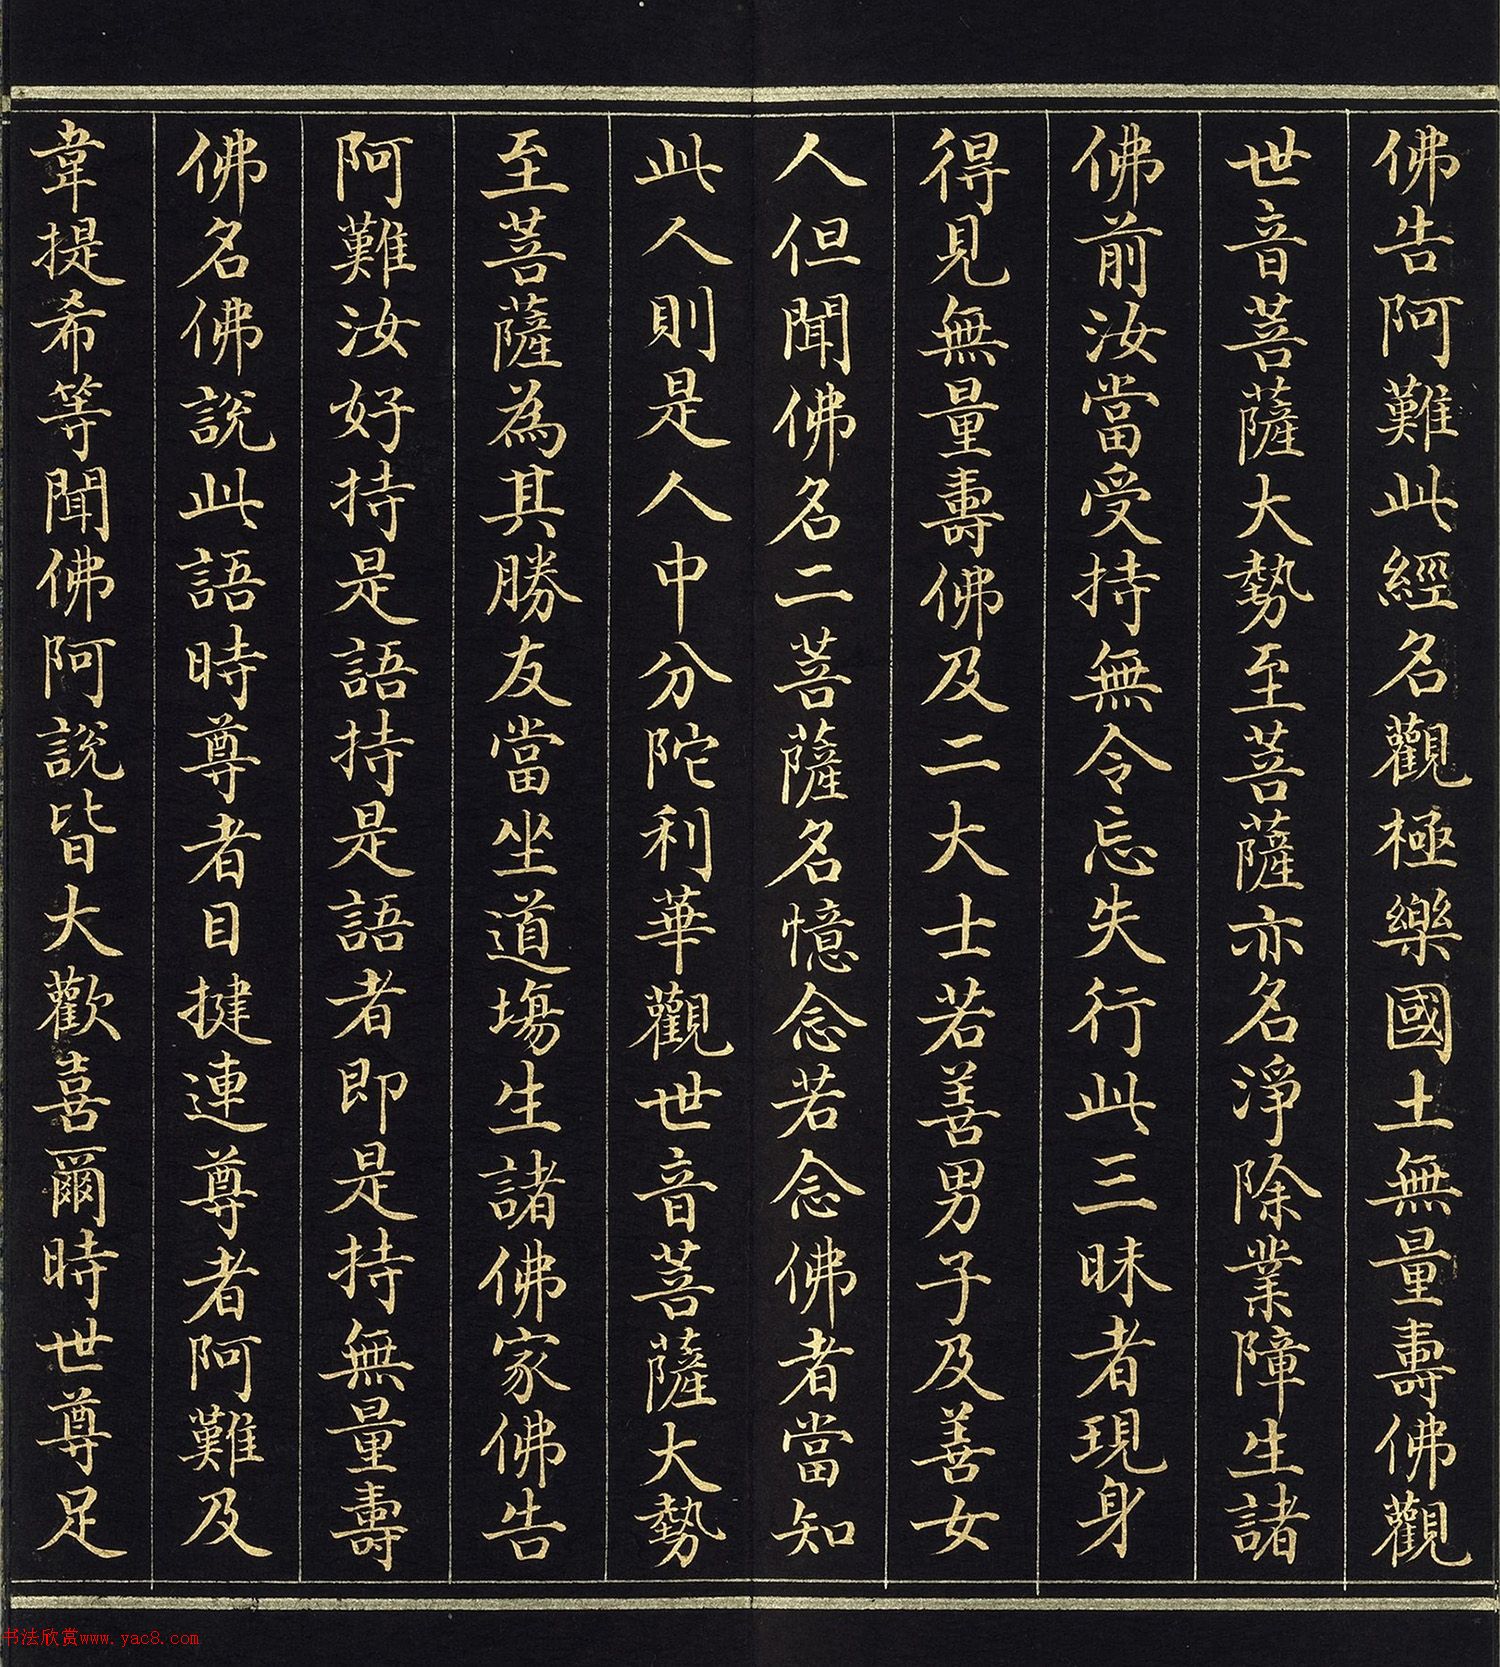 佛告阿難此經名觀極樂國土無量壽佛觀
世音菩薩大勢至菩薩亦名淨除業障生諸
佛前汝當受持無令忘失行此三昧者現身
得見無量壽佛及二大士若善男子及善女
人但聞佛名二菩薩名憶念若念佛者當知
此人則是人中分陀利華觀世音菩薩大勢
至菩薩為其勝友當坐道塲生諸佛家佛告
阿難汝好持是語持是語者即是持無量壽
佛名佛說此語時尊者目揵連尊者阿難及
韋提希等聞佛阿說皆大歡喜爾時世尊足
书法欣赏www.yac8.com